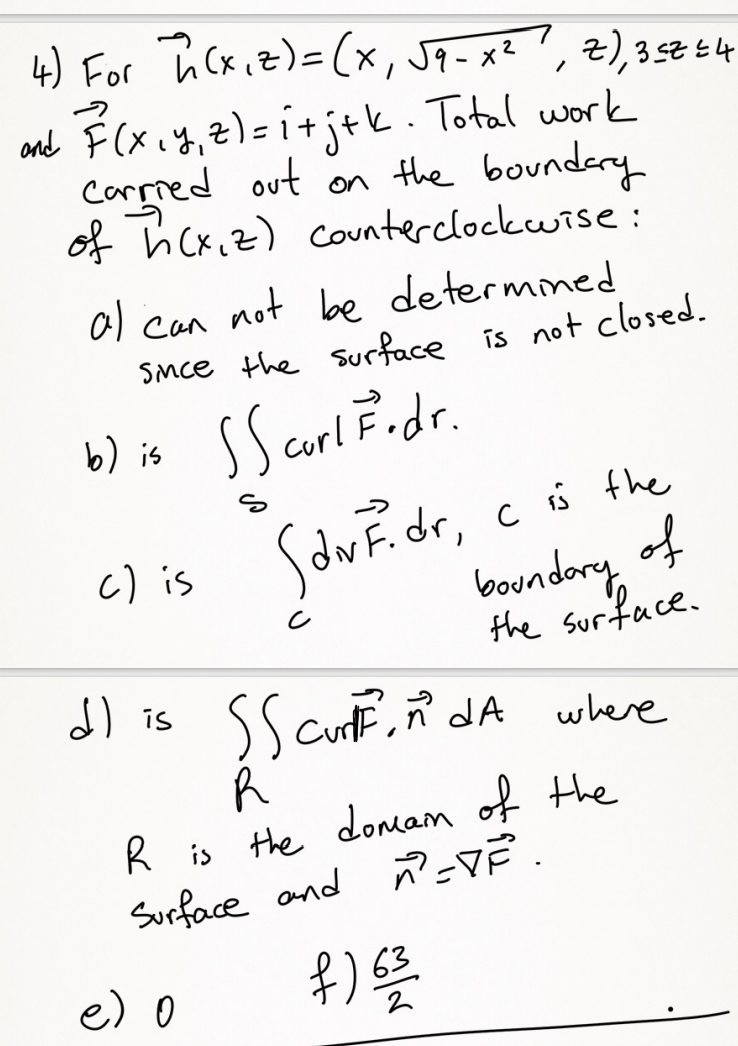 4) For h⃗(x,z)=(x, √9-x², z), 3≤z≤4
and F⃗(x,y,z)=i+j+k. Total work
carried out on the boundary
of h⃗(x,z) counterclockwise:
a) can not be determined
since the surface is not closed.
b) is ∬_S curl F⃗.dr.
c) is ∫_C div F⃗.dr, c is the
boundary of
the surface.
d) is ∬_R Curl F⃗.n⃗ dA where
R is the domain of the
surface and n⃗=∇F⃗.
e) 0 f) 63/2